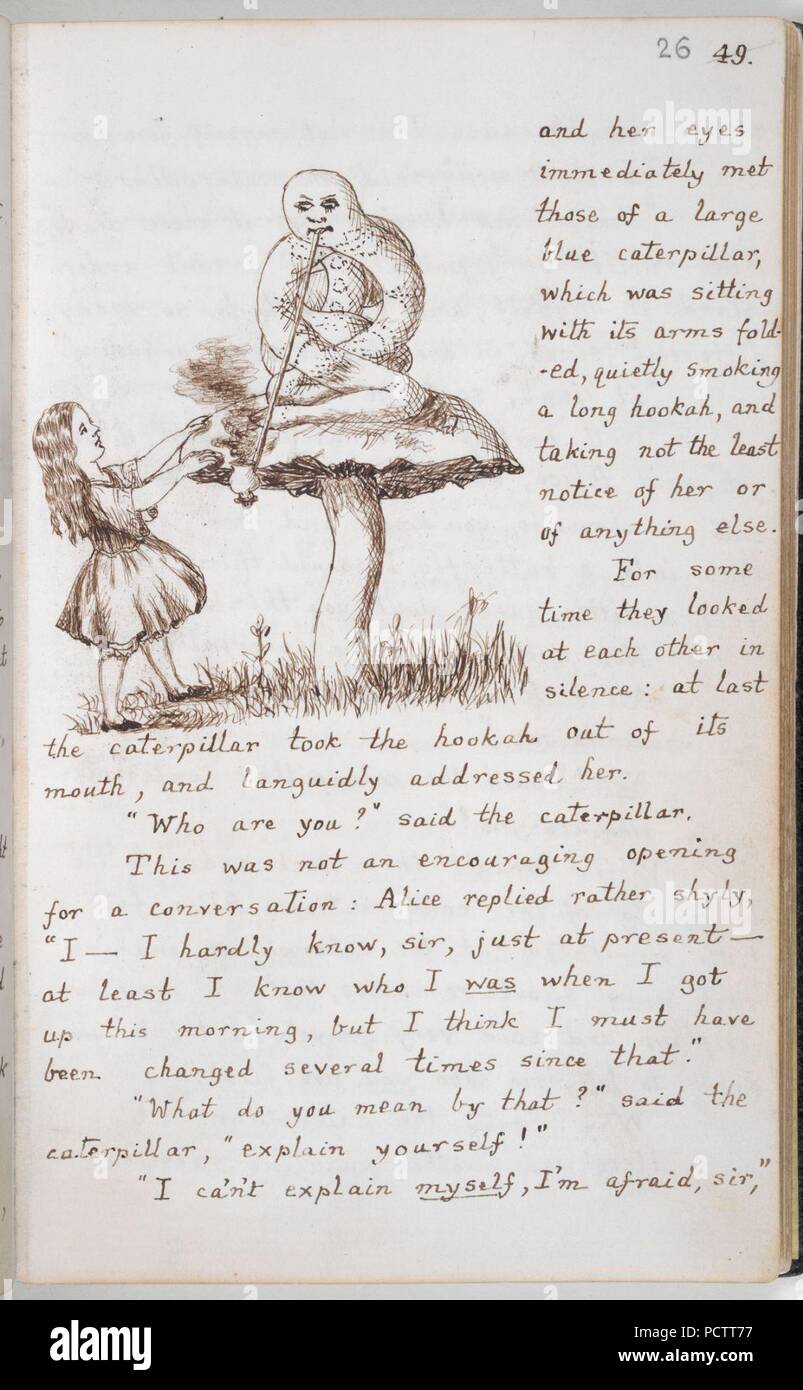 26 49.
and her eyes
immediately met
those of a large
blue caterpillar,
which was sitting
with its arms fold-
-ed, quietly smoking
a long hookah, and
taking not the least
notice of her or
of anything else.
For some
time they looked
at each other in
silence: at last
the caterpillar took the hookah out of its
mouth, and languidly addressed her.
"Who are you?" said the caterpillar.
This was not an encouraging opening
for a conversation: Alice replied rather shyly,
"I — I hardly know, sir, just at present —
at least I know who I was when I got
up this morning, but I think I must have
been changed several times since that."
"What do you mean by that?" said the
caterpillar, "explain yourself!"
"I ca'n't explain myself, I'm afraid, sir,"
alamy
Image ID: PCTT77
www.alamy.com